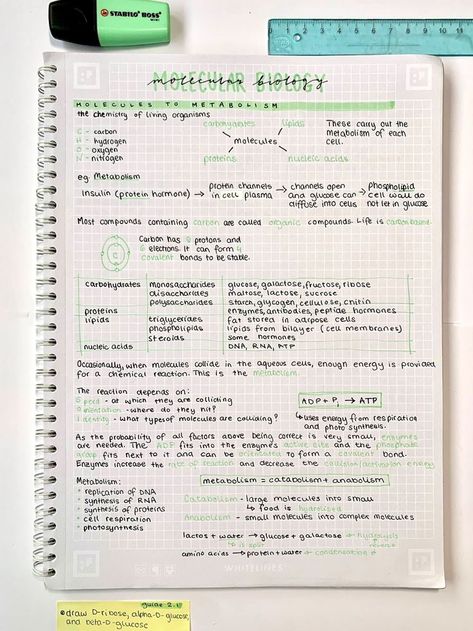 STABILO BOSS
MOLECULAR BIOLOGY
molecular biology
MOLECULES TO METABOLISM
the chemistry of living organisms
C - carbon
H - hydrogen
O - oxygen
N - nitrogen
carbohydrates lipids
molecules
proteins nucleic acids
These carry out the
metabolism of each
cell.
eg. Metabolism
Insulin (protein hormone) → protein channels in cell plasma → channels open and glucose can diffuse into cells → phospholipid cell wall do not let in glucose
Most compounds containing carbon are called organic compounds. Life is carbon based.
Carbon has 6 protons and
6 electrons. It can form 4
covalent bonds to be stable.
C
carbohydrates monosaccharides glucose, galactose, fructose, ribose
disaccharides maltose, lactose, sucrose
polysaccharides starch, glycogen, cellulose, chitin
proteins enzymes, antibodies, peptide hormones
lipids triglycerides fat stored in adipose cells
phospholipids lipids from bilayer (cell membranes)
steroids some hormones
nucleic acids DNA, RNA, ATP
Occasionally, when molecules collide in the aqueous cells, enough energy is provided
for a chemical reaction. This is the metabolism.
The reaction depends on:
Speed - at which they are colliding
Orientation - where do they hit?
Identity - what types of molecules are colliding?
ADP + Pi → ATP
↳ uses energy from respiration
and photo synthesis.
As the probability of all factors above being correct is very small, enzymes
are needed. The ADP fits into the enzymes active site and the phosphate
group fits next to it and can be orientated to form a covalent bond.
Enzymes increase the rate of reaction and decrease the collision/activation energy
Metabolism:
• replication of DNA
• synthesis of RNA
• synthesis of proteins
• cell respiration
• photosynthesis
metabolism = catabolism + anabolism
Catabolism - large molecules into small
↳ food is hydrolised
Anabolism - small molecules into complex molecules
lactos + water → glucose + galactose → hydrolysis
↳ is split
reverse
amino acids → protein + water → condensation
WHITELINES
guide 2.1
draw D-ribose, alpha-D-glucose,
and beta-D-glucose